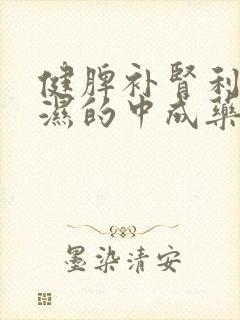 健脾补肾利
湿的中成药
墨染清安